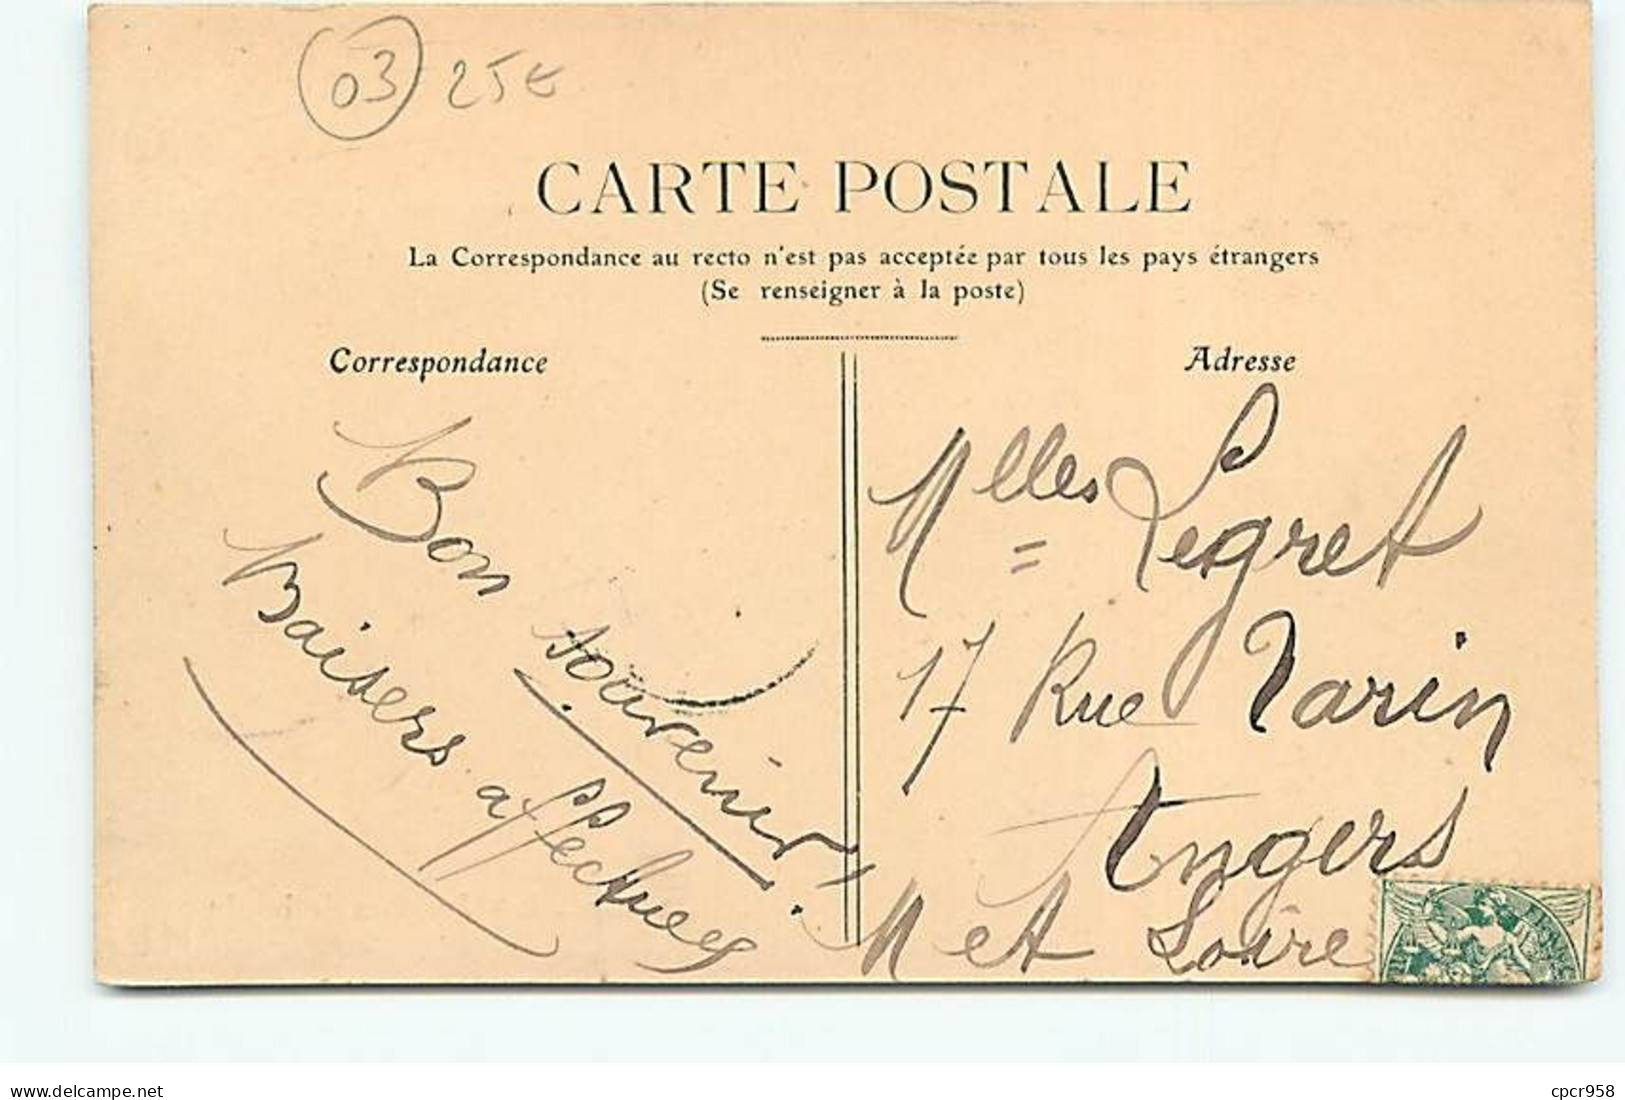 03 25€
CARTE POSTALE
La Correspondance au recto n'est pas acceptée par tous les pays étrangers
(Se renseigner à la poste)
Correspondance
Bon souvenir.
Baisers affectueux
Adresse
Mlles Legret
17 Rue Tarin
Angers
M et Loire
www.delcampe.net
cpcr958